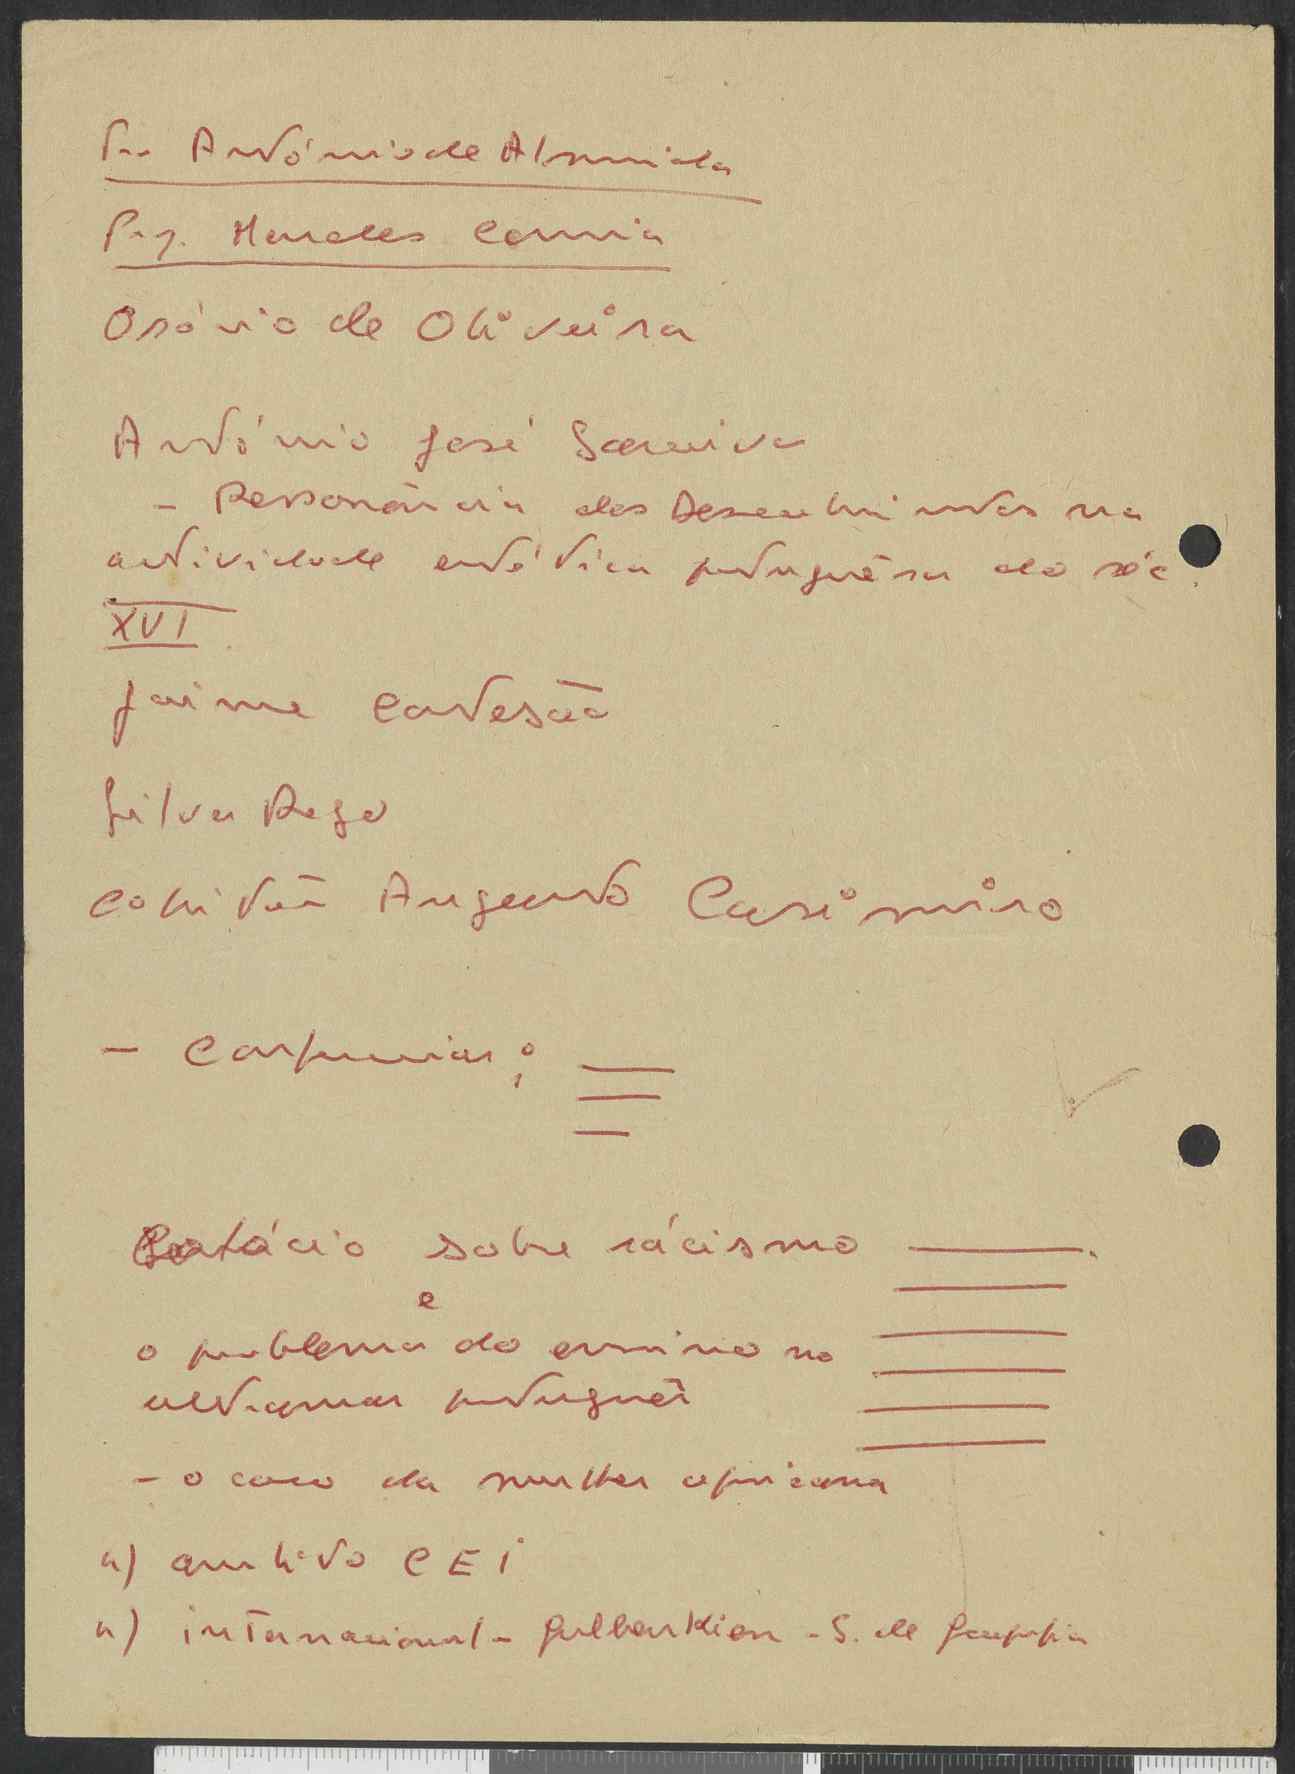 Dr. António de Almeida
Prof. Mendes Correia
Osório de Oliveira
António José Saraiva
- Ressonância dos Descobrimentos na
actividade artística portuguêsa do séc.
XVI
Jaime Cortesão
Silva Rego
Capitão Augusto Casimiro
-
sobre rácismo
e
o problema do ensino no
ultramar português
- o caso da mulher africana
a) ambito CEI
a) internacional - Gulbenkian - S. de Geografia